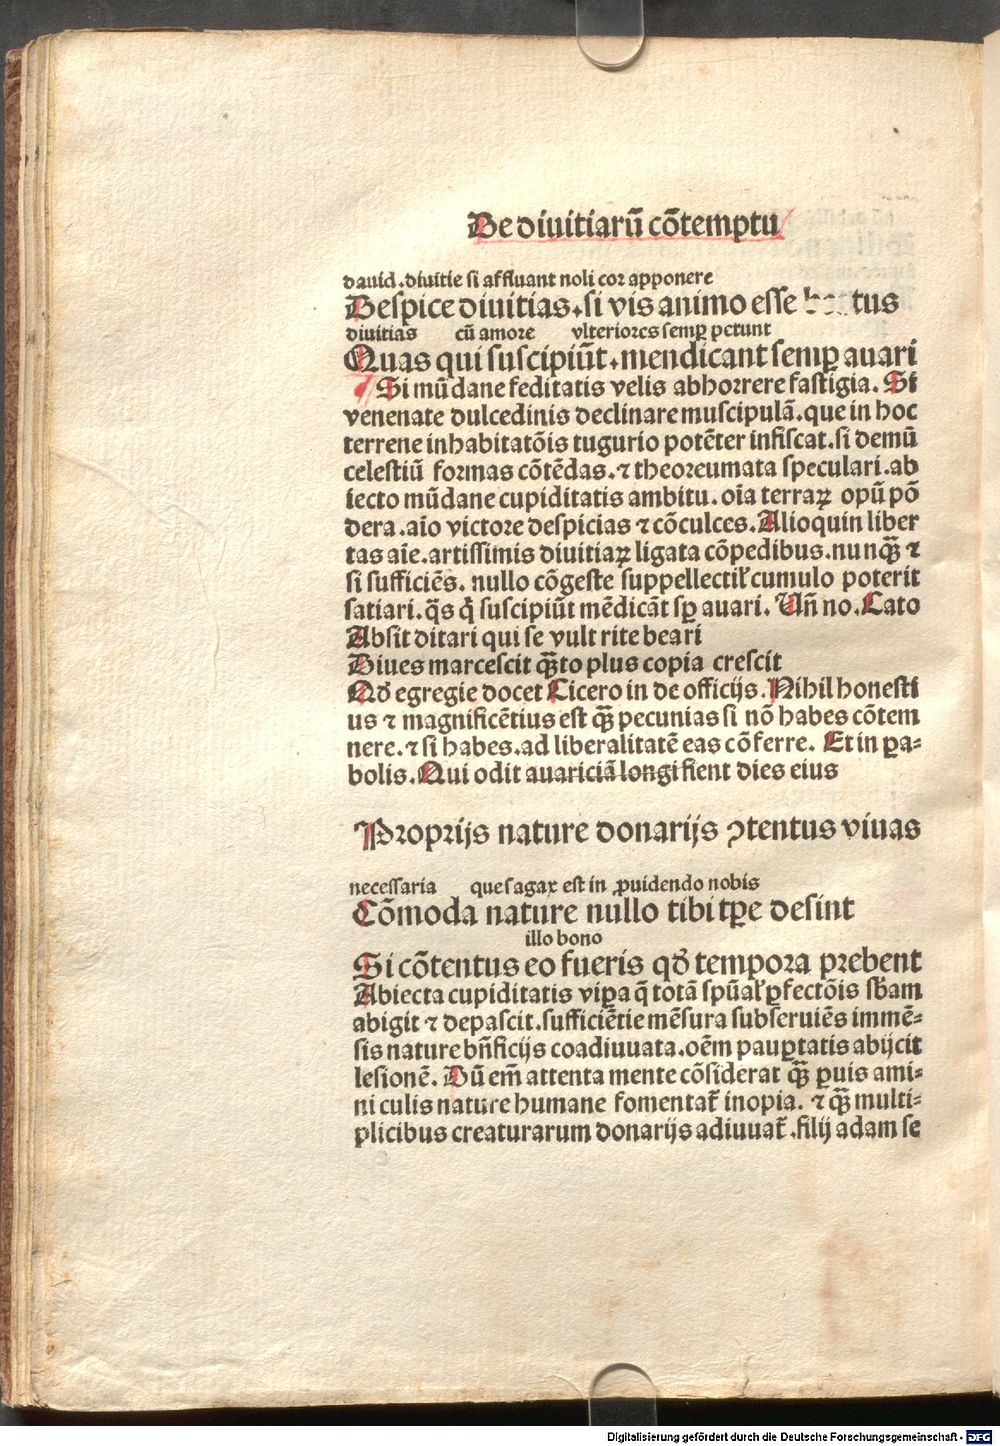 De diuitiarū cōtemptu
dauid .diuitie si affluant noli cor apponere
Despice diuitias .si vis animo esse tus
diuitias cū amore vlteriores semꝑ petunt
Quas qui suscipiūt .mendicant semꝑ auari
Si mūdane feditatis velis abhorrere fastigia. Si
venenate dulcedinis declinare muscipulā .que in hoc
terrene inhabitatōis tugurio potēter infiscat .si demū
celestiū formas cōtēdas .⁊ theoreumata speculari .ab
iecto mūdane cupiditatis ambitu. oīa terraꝝ opū pō
dera .aīo victore despicias ⁊ cōculces. Alioquin liber
tas aīe .artissimis diuitiaꝝ ligata cōpedibus .nunq̄ꝫ ⁊
si sufficiēs. nullo cōgeste suppellectiƚ cumulo poterit
satiari. q̄s q̄ suscipiūt mēdicāt sꝑ auari. Vn̄ no. Cato
Absit ditari qui se vult rite beari
Diues marcescit q̄ꝫto plus copia crescit
Qd̓ egregie docet Cicero in de officijs. Nihil honesti
us ⁊ magnificētius est q̄ꝫ pecunias si nō habes cōtem
nere. ⁊ si habes .ad liberalitatē eas cōferre. Et in ꝑa-
bolis. Qui odit auariciā longi fient dies eius
Proprijs nature donarijs ꝯtentus viuas
necessaria que sagax est in ꝓuidendo nobis
Cōmoda nature nullo tibi tꝑe desint
illo bono
Si cōtentus eo fueris qd̓ tempora prebent
Abiecta cupiditatis viꝑa q̄ totā spūaƚ ꝑfectōis sb̄am
abigit ⁊ depascit .sufficiētie mēsura subseruiēs immē-
sis nature bn̄ficijs coadiuuata .oēm pauꝑtatis abijcit
lesionē. Dū em̄ attenta mente cōsiderat q̄ꝫ ꝑuis ami-
niculis nature humane fomentat̄ inopia. ⁊ q̄ꝫ multi-
plicibus creaturarum donarijs adiuuat̄ .filij adam se
Digitalisierung gefördert durch die Deutsche Forschungsgemeinschaft - DFG